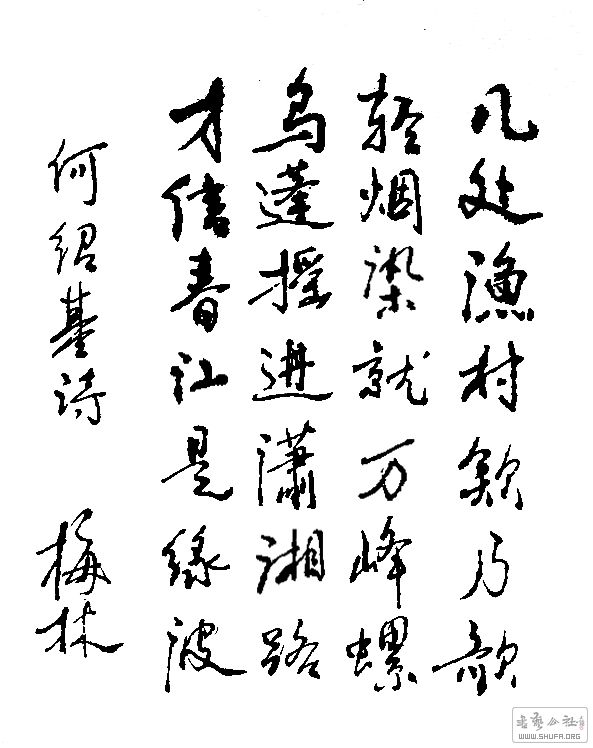 几处渔村欸乃歌
轻烟染就万峰螺
乌蓬摇进潇湘路
才信春江是绿波
何绍基诗 梅林
书艺公社
WWW.SHUFA.ORG